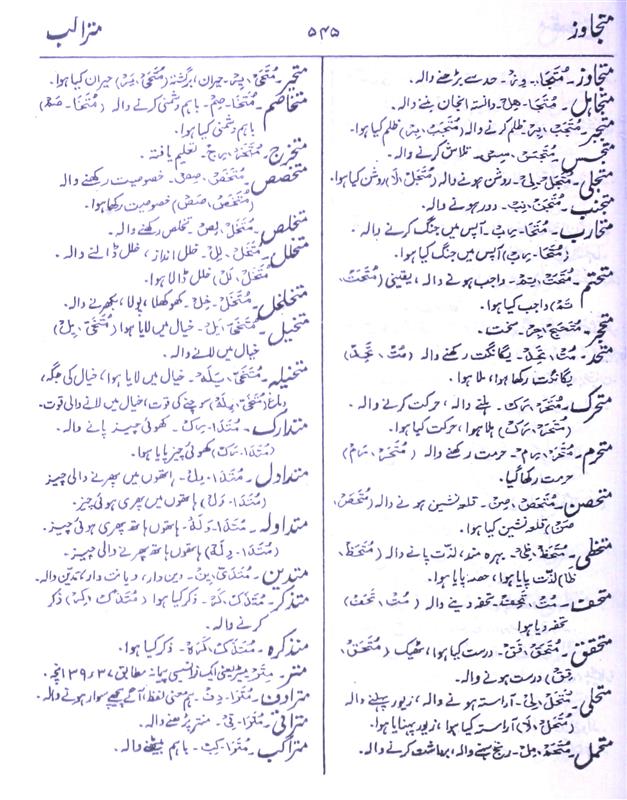 متجاوز
۵۴۵
متراکب
متجاوز۔ مُتَجَا۔ وِز۔ حد سے بڑھنے والہ۔
متجاہل۔ مُتَجَا۔ ہِل۔ دانستہ انجان بننے والہ۔
متجبر۔ مُتَجَبْ، بِر۔ ظلم کرنے والہ (مُتَجَبْ، بَر) ظلم کیا ہوا۔
متجسس۔ مُتَجَسْ، سِس۔ تلاش کرنے والہ۔
متجلی۔ مُتَجَلْ، لِیْ۔ روشن ہونے والہ (مُتَجَلْ، لَا) روشن کیا ہوا۔
متجنب۔ مُتَجَنْ، نِب۔ دور ہونے والہ۔
متحارب۔ مُتَحَا۔ رِب۔ آپس میں جنگ کرنے والہ۔
(مُتَحَا۔ رَب) آپس میں جنگ کیا ہوا۔
متحتم۔ مُتَحَتْ، تِم۔ واجب ہونے والہ، یقینی (مُتَحَتْ،
تَم) واجب کیا ہوا۔
متحجر۔ مُتَحَجْ، جِر۔ سخت۔
متحد۔ مُتْ، تَحِد۔ یگانگت رکھنے والہ (مُتْ، تَحَد)
یگانگت رکھا ہوا، ملا ہوا۔
متحرک۔ مُتَحَرْ، رِک۔ ہلنے والہ، حرکت کرنے والہ۔
(مُتَحَرْ، رَک) ہلا ہوا، حرکت کیا ہوا۔
متحرم۔ مُتَحَرْ، رِم۔ حرمت رکھنے والہ (مُتَحَرْ، رَم)
حرمت رکھا گیا۔
متحصن۔ مُتَحَصْ، صِن۔ قلعہ نشین ہونے والہ (مُتَحَصْ،
صَن) قلعہ نشین کیا ہوا۔
متحظی۔ مُتَحَظْ، ظِیْ۔ بہرہ مند، لذت پانے والہ (مُتَحَظْ،
ظَا) لذت پایا ہوا، حصہ پایا ہوا۔
متحف۔ مُتْ، تَحِف۔ تحفہ دینے والہ (مُتْ، تَحَف)
تحفہ دیا ہوا
متحقق۔ مُتَحَقْ، قَق۔ درست کیا ہوا، ٹھیک (مُتَحَقْ،
قِق) درست ہونے والہ۔
متحلی۔ مُتَحَلْ، لِیْ۔ آراستہ ہونے والہ، زیور پہننے والہ
(مُتَحَلْ، لَا) آراستہ کیا ہوا، زیور پہنایا ہوا۔
متحمل۔ مُتَحَمْ، مِل۔ رنج سہنے والہ، برداشت کرنے والہ۔
متحیر۔ مُتَحَیْ، یِر۔ حیران، برگشتہ (مُتَحَیْ، یَر) حیران کیا ہوا۔
متخاصم۔ مُتَخَا۔ صِم۔ باہم دشمنی کرنے والہ (مُتَخَا۔ صَم)
باہم دشمنی کیا ہوا۔
متخرج۔ مُتَخَرْ، رِج۔ تعلیم یافتہ۔
متخصص۔ مُتَخَصْ، صِص۔ خصوصیت رکھنے والہ
(مُتَخَصْ، صَص) خصوصیت رکھا ہوا۔
متخلص۔ مُتَخَلْ، لِص۔ تخلص رکھنے والہ۔
متخلل۔ مُتَخَلْ، لِل۔ خلل انداز، خلل ڈالنے والہ۔
مُتَخَلْ، لَل) خلل ڈالا ہوا۔
متخلخل۔ مُتَخَلْ، خِل۔ کھوکھلا، پولا، بکھرنے والہ۔
متخیل۔ مُتَخَیْ، یَل۔ خیال میں لایا ہوا (مُتَخَیْ، یِل)
خیال میں لانے والہ۔
متخیلہ۔ مُتَخَیْ، یَلَہ۔ خیال میں لایا ہوا، خیال کی جگہ،
دماغ (مُتَخَیْ، یِلَہ) سوچنے کی قوت، خیال میں لانے والی قوت۔
متدارک۔ مُتَدَا۔ رِک۔ کھوئی چیز پانے والہ۔
(مُتَدَا۔ رَک) کھوئی چیز پایا ہوا۔
متداول۔ مُتَدَا۔ وِل۔ ہاتھوں میں پھرنے والی چیز
(مُتَدَا۔ وَل) ہاتھوں میں پھری ہوئی چیز۔
متداولہ۔ مُتَدَا۔ وَلَہ۔ ہاتھوں ہاتھ پھری ہوئی چیز۔
(مُتَدَا۔ وِلَہ) ہاتھوں ہاتھ پھرنے والی چیز۔
متدین۔ مُتَدَیْ، یِن۔ دین دار، دیانت دار، تدین والہ۔
متذکر۔ مُتَذَکْ، کَر۔ ذکر کیا ہوا (مُتَذَکْ، کِر) ذکر
کرنے والہ۔
متذکرہ۔ مُتَذَکْ، کَرَہ۔ ذکر کیا ہوا۔
متر۔ مِتَر۔ میٹر یعنی ایک فرانسیسی پیمانہ مطابق ۳۹٫۳۷ انچہ۔
مترادف۔ مُتَرَا۔ دِف۔ ہم معنی لفظ، آگے پیچھے سوار ہونے والہ۔
متراقی۔ مُتَرَا۔ قِیْ۔ منتر پڑھنے والہ۔
متراکب۔ مُتَرَا۔ کِب۔ باہم بیٹھنے والہ۔